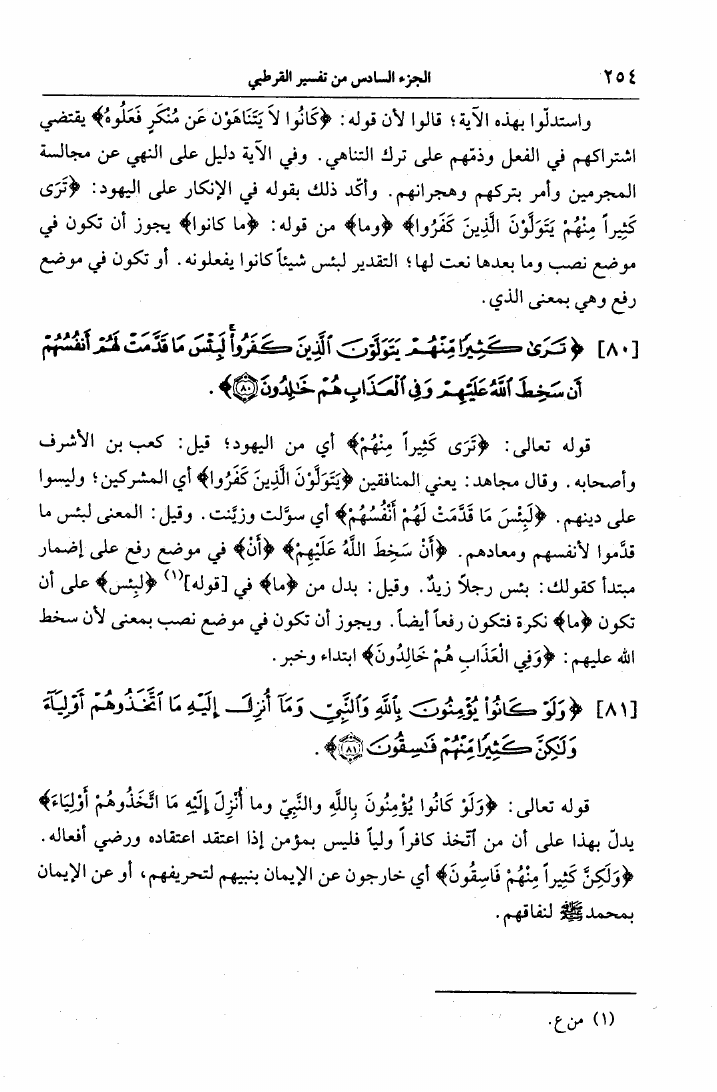 ٢٥٤ الجزء السادس من تفسير القرطبي
واستدلّوا بهذه الآية؛ قالوا لأن قوله: ﴿كَانُوا لاَ يَتَنَاهَوْن عَن مُنْكَرٍ فَعَلُوهُ﴾ يقتضي
اشتراكهم في الفعل وذمّهم على ترك التناهي. وفي الآية دليل على النهي عن مجالسة
المجرمين وأمر بتركهم وهجرانهم. وأكّد ذلك بقوله في الإنكار على اليهود: ﴿تَرَى
كَثِيراً مِنْهُمْ يَتَوَلَّوْنَ الَّذِينَ كَفَرُوا﴾ ﴿وما﴾ من قوله: ﴿ما كانوا﴾ يجوز أن تكون في
موضع نصب وما بعدها نعت لها؛ التقدير لبئس شيئاً كانوا يفعلونه. أو تكون في موضع
رفع وهي بمعنى الذي.
[٨٠] ﴿ تَرَىٰ كَثِيرًا مِّنْهُمْ يَتَوَلَّوْنَ ٱلَّذِينَ كَفَرُواْۚ لَبِئْسَ مَا قَدَّمَتْ لَهُمْ أَنفُسُهُمْ
أَن سَخِطَ ٱللَّهُ عَلَيْهِمْ وَفِي ٱلْعَذَابِ هُمْ خَٰلِدُونَ ۝٨٠﴾.
قوله تعالى: ﴿تَرَى كَثِيراً مِنْهُمْ﴾ أي من اليهود؛ قيل: كعب بن الأشرف
وأصحابه. وقال مجاهد: يعني المنافقين ﴿يَتَوَلَّوْنَ الَّذِينَ كَفَرُوا﴾ أي المشركين؛ وليسوا
على دينهم. ﴿لَبِئْسَ مَا قَدَّمَتْ لَهُمْ أَنْفُسُهُمْ﴾ أي سوَّلت وزيَّنت. وقيل: المعنى لبئس ما
قدَّموا لأنفسهم ومعادهم. ﴿أَنْ سَخِطَ اللَّهُ عَلَيْهِمْ﴾ ﴿أَنْ﴾ في موضع رفع على إضمار
مبتدأ كقولك: بئس رجلاً زيدٌ. وقيل: بدل من ﴿ما﴾ في [قوله](١) ﴿لَبِئس﴾ على أن
تكون ﴿ما﴾ نكرة فتكون رفعاً أيضاً. ويجوز أن تكون في موضع نصب بمعنى لأن سخط
الله عليهم: ﴿وَفِي الْعَذَابِ هُمْ خَالِدُونَ﴾ ابتداء وخبر.
[٨١] ﴿ وَلَوْ كَانُواْ يُؤْمِنُونَ بِٱللَّهِ وَٱلنَّبِيِّ وَمَآ أُنزِلَ إِلَيْهِ مَا ٱتَّخَذُوهُمْ أَوْلِيَآءَ
وَلَٰكِنَّ كَثِيرًا مِّنْهُمْ فَٰسِقُونَ ۝٨١﴾.
قوله تعالى: ﴿وَلَوْ كَانُوا يُؤْمِنُونَ بِاللَّهِ والنَّبِيّ وما أُنْزِلَ إِلَيْهِ مَا اتَّخَذُوهُمْ أَوْلِيَاءَ﴾
يدلّ بهذا على أن من ٱتّخذ كافراً ولياً فليس بمؤمن إذا اعتقد اعتقاده ورضي أفعاله.
﴿وَلَكِنَّ كَثِيراً مِنْهُمْ فَاسِقُونَ﴾ أي خارجون عن الإيمان بنبيهم لتحريفهم، أو عن الإيمان
بمحمد ﷺ لنفاقهم.
(١) من ع.